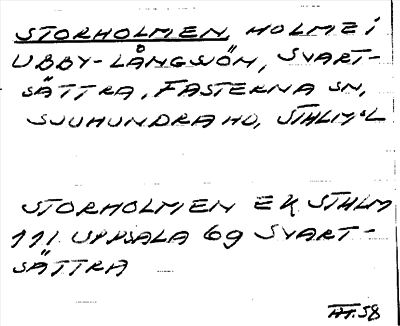 STORHOLMEN, HOLME i
UBBY-LÅNGSJÖN, SVART-
SÄTTRA, FASTERNA SN,
SJUHUNDRA HD, STHLM:S L
STORHOLMEN EK STHLM
111 UPPSALA 69 SVART-
SÄTTRA
HT.58